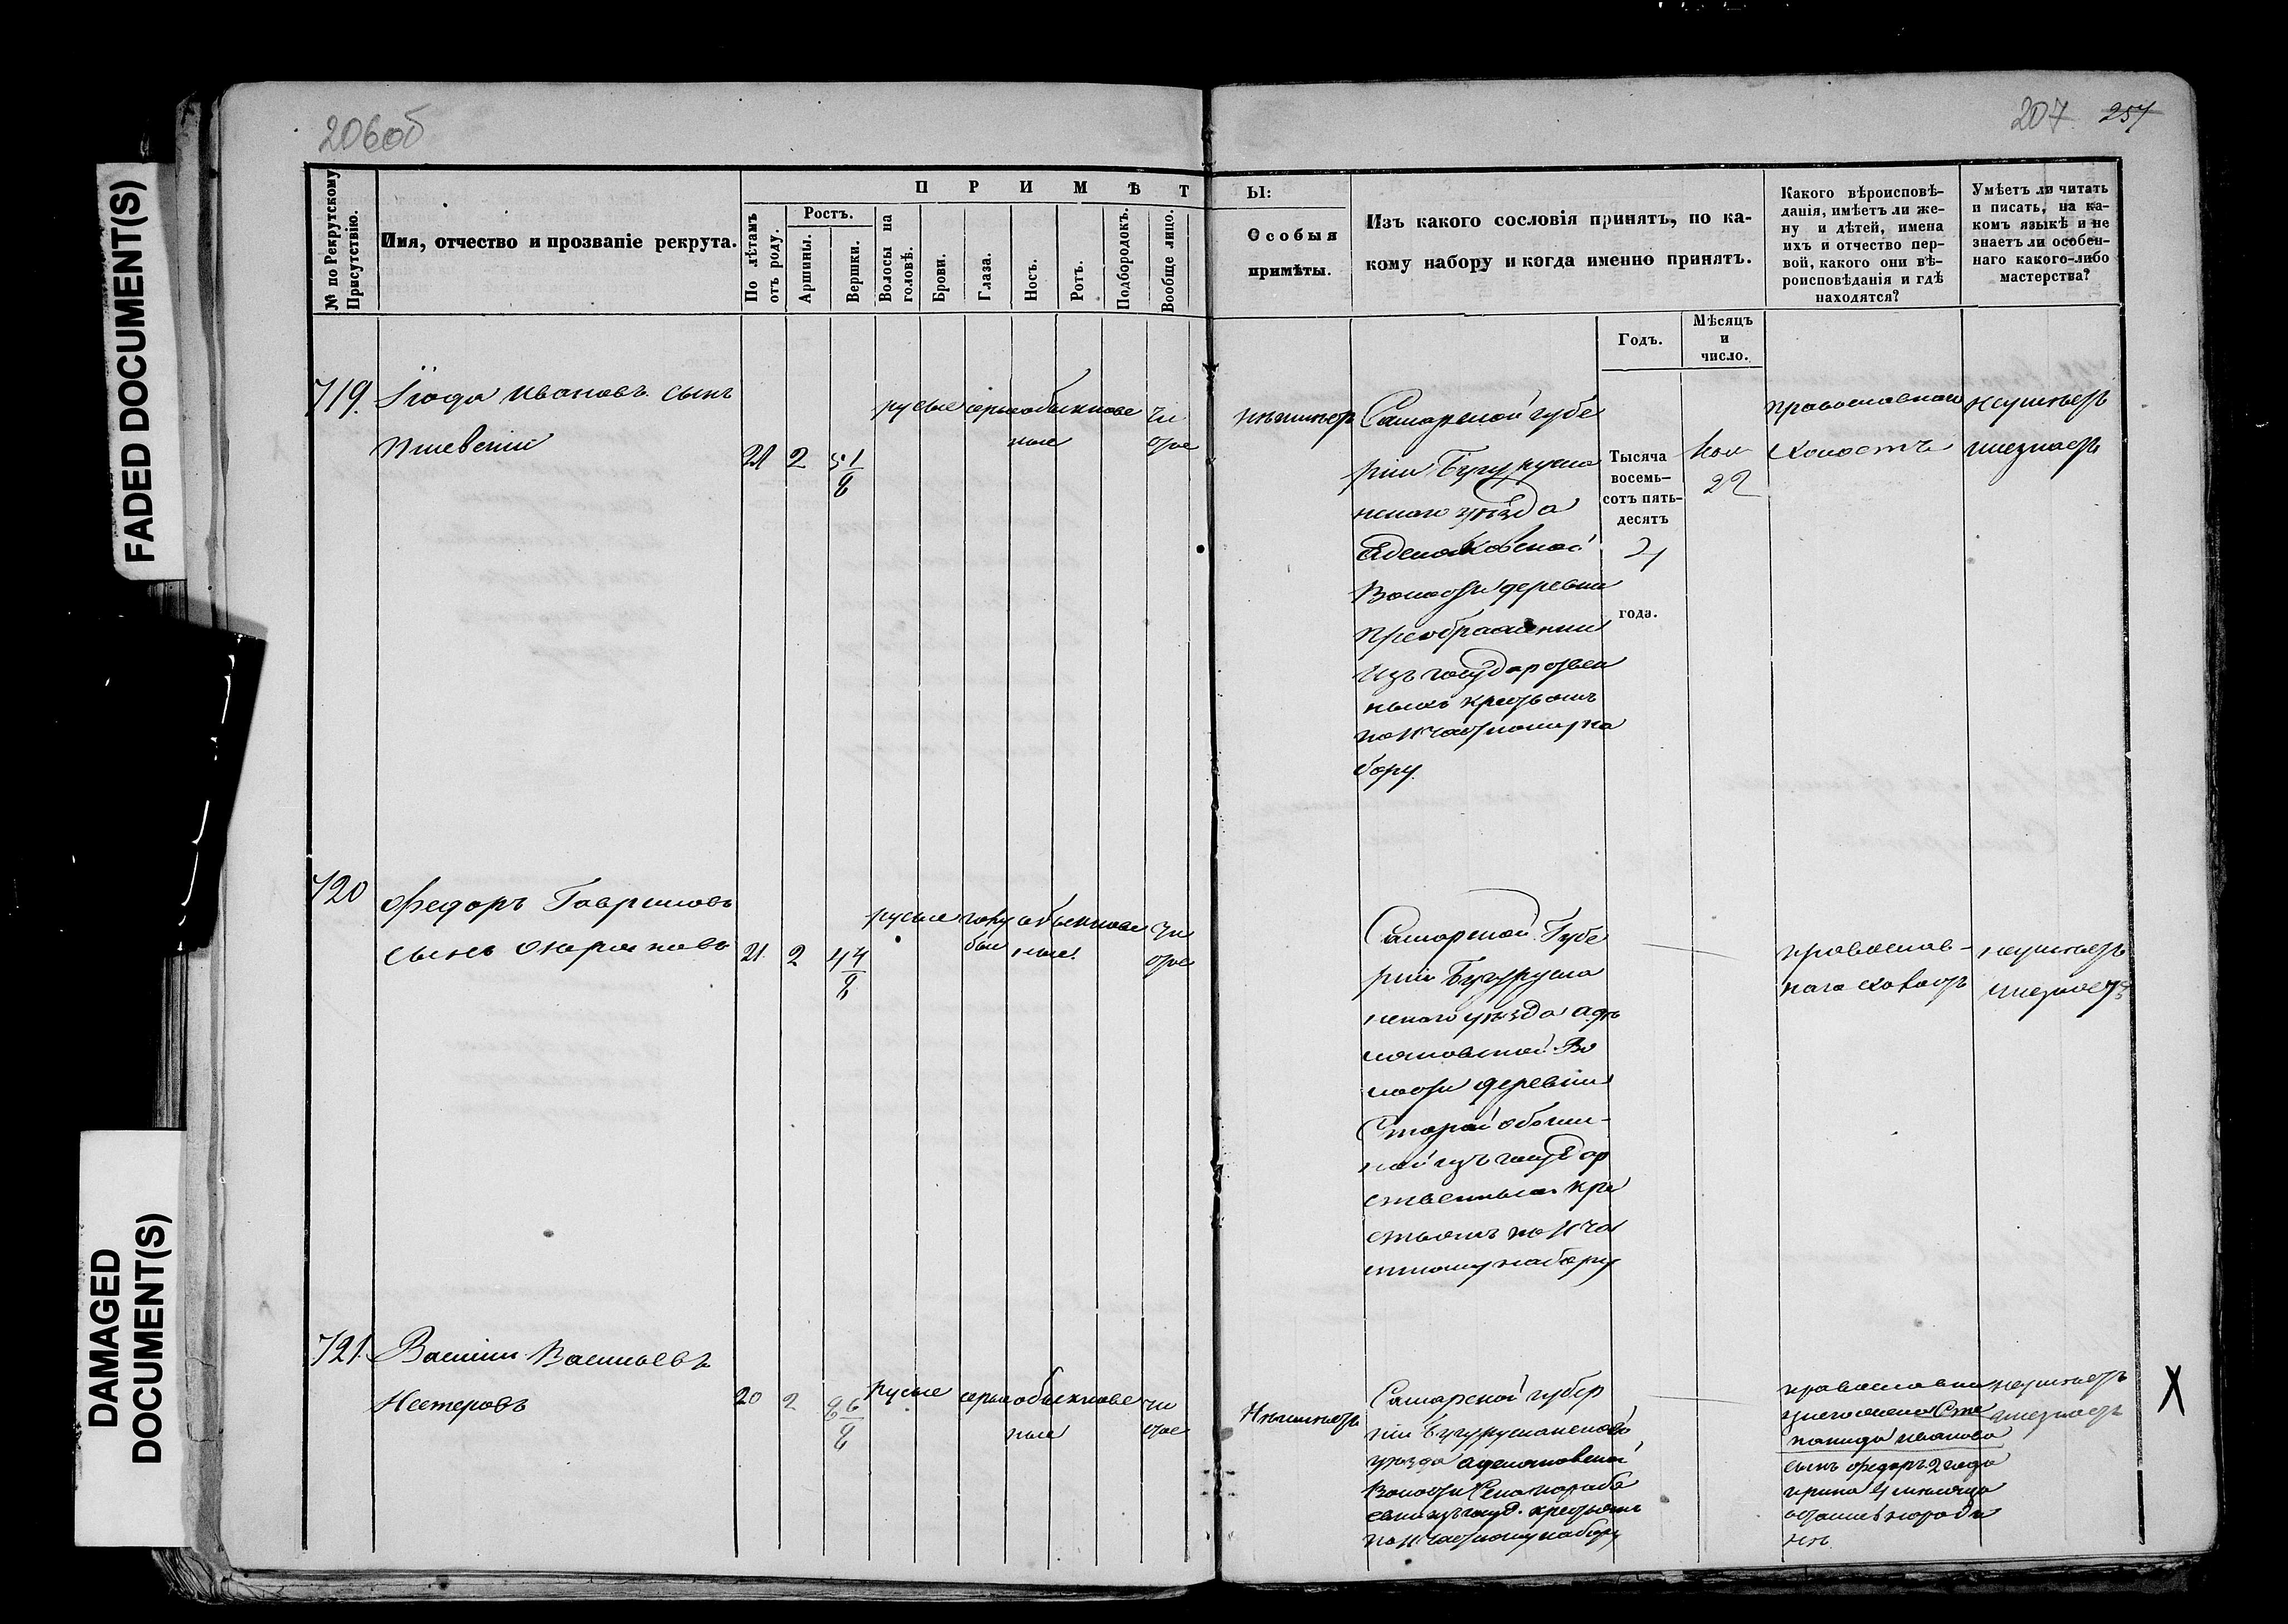 206об
207. 257
FADED DOCUMENT(S)
DAMAGED
DOCUMENT(S)
№ по Рекрутскому
Присутствію.
Имя, отчество и прозваніе рекрута.
П Р И М Ѣ Т
Ы:
По лѣтамъ
отъ роду.
Ростъ.
Аршины.
Вершки.
Волосы на
головѣ.
Брови.
Глаза.
Носъ.
Ротъ.
Подбородокъ.
Вообще лицо.
Особыя
примѣты.
Изъ какого сословія принятъ, по ка-
кому набору и когда именно принятъ.
Годъ.
Мѣсяцъ
и
число.
Какого вѣроисповѣ-
данія, имѣетъ ли же-
ну и дѣтей, имена
ихъ и отчество пер-
вой, какого они вѣ-
роисповѣданія и гдѣ
находятся?
Умѣетъ ли читать
и писать, на ка-
комъ языкѣ и не
знаетъ ли особен-
наго какого-либо
мастерства?
719.
Ивановъ сынъ
21 2 5 1/8
русые серые обыкнове
ные
чи
стое
неимѣетъ
Самарской губе
рніи Бугурусла
нскаго уѣзда
Волости деревни
Преображенки
изъ государствен
ныхъ крестьянъ
по 11 частному на
бору.
Тысяча
восемь-
сотъ пять-
десятъ
4
года.
Ноя
22
православнаго
холостъ
неумѣетъ
инезнаетъ
720
Федоръ Гавриловъ
сынъ
21. 2 4 4/8
русые голу
бые
обыкнове
ные.
чи
стое
Самарской Губе
рніи Бугурусла
нскаго уѣзда адѣ
лаковской Во
лости деревни
Старой
изъ государ
ственныхъ кре
стьянъ по 11 ча
стному набору
православ-
наго холостъ
неумѣетъ
инезнаетъ
721.
Василій Васильевъ
Нестеровъ
20 2 6/8
Русые серые обыкнове
ные
чи
стое
Неимѣетъ
Самарской губер
ніи Бугурусланскаго
уѣзда аделаковской
Волости Села
изъ госуд. крестьянъ
по 11 частному набору
православнаго
жена Сте
панида Иванова
сынъ федоръ 2 года
ирина 4 месяца
на роди
нѣ.
неумѣетъ
инезнаетъ
X